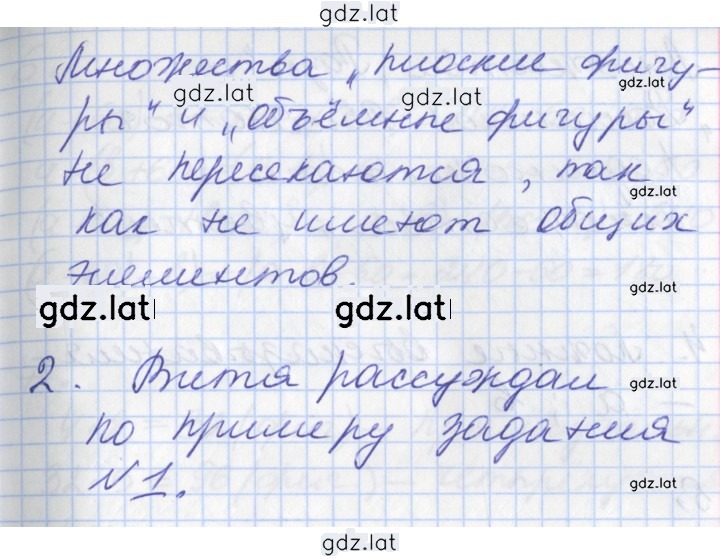 gdz.lat
Множества „плоские фигу-
gdz.lat
gdz.lat gdz.lat
ры“ и „объёмные фигуры“
не пересекаются, так
gdz.lat
как не имеют общих
элементов.
gdz.lat
gdz.lat gdz.lat
2. Витя рассуждал
gdz.lat
по примеру задания
gdz.lat
№1.
gdz.lat